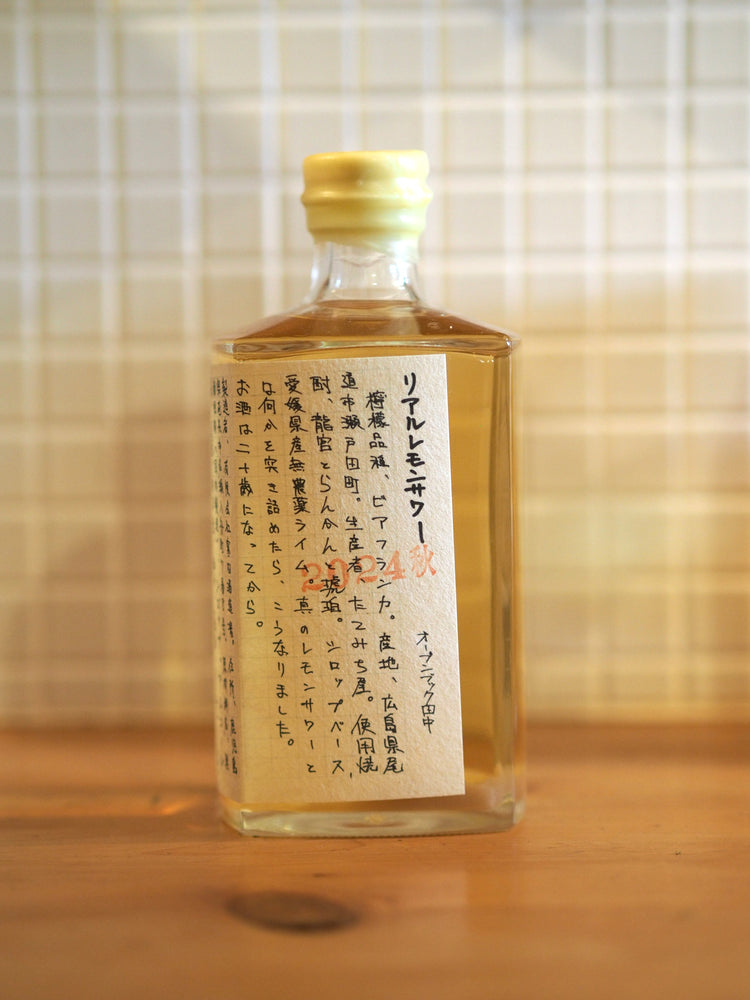 リアルレモンサワー
2024秋
オープンブック田中
檸檬品種、ビアフランカ。産地、広島県尾
道市瀬戸田町。生産者、たてみち屋。使用焼
酎、龍宮とらんかんと琥珀。シロップベース、
愛媛県産無農薬ライム。真のレモンサワーと
は何かを突き詰めたら、こうなりました。
お酒は二十歳になってから。